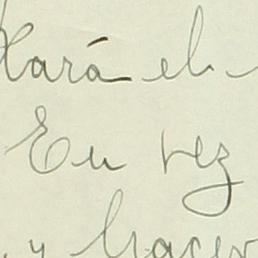 xará el
En vez
y hacer